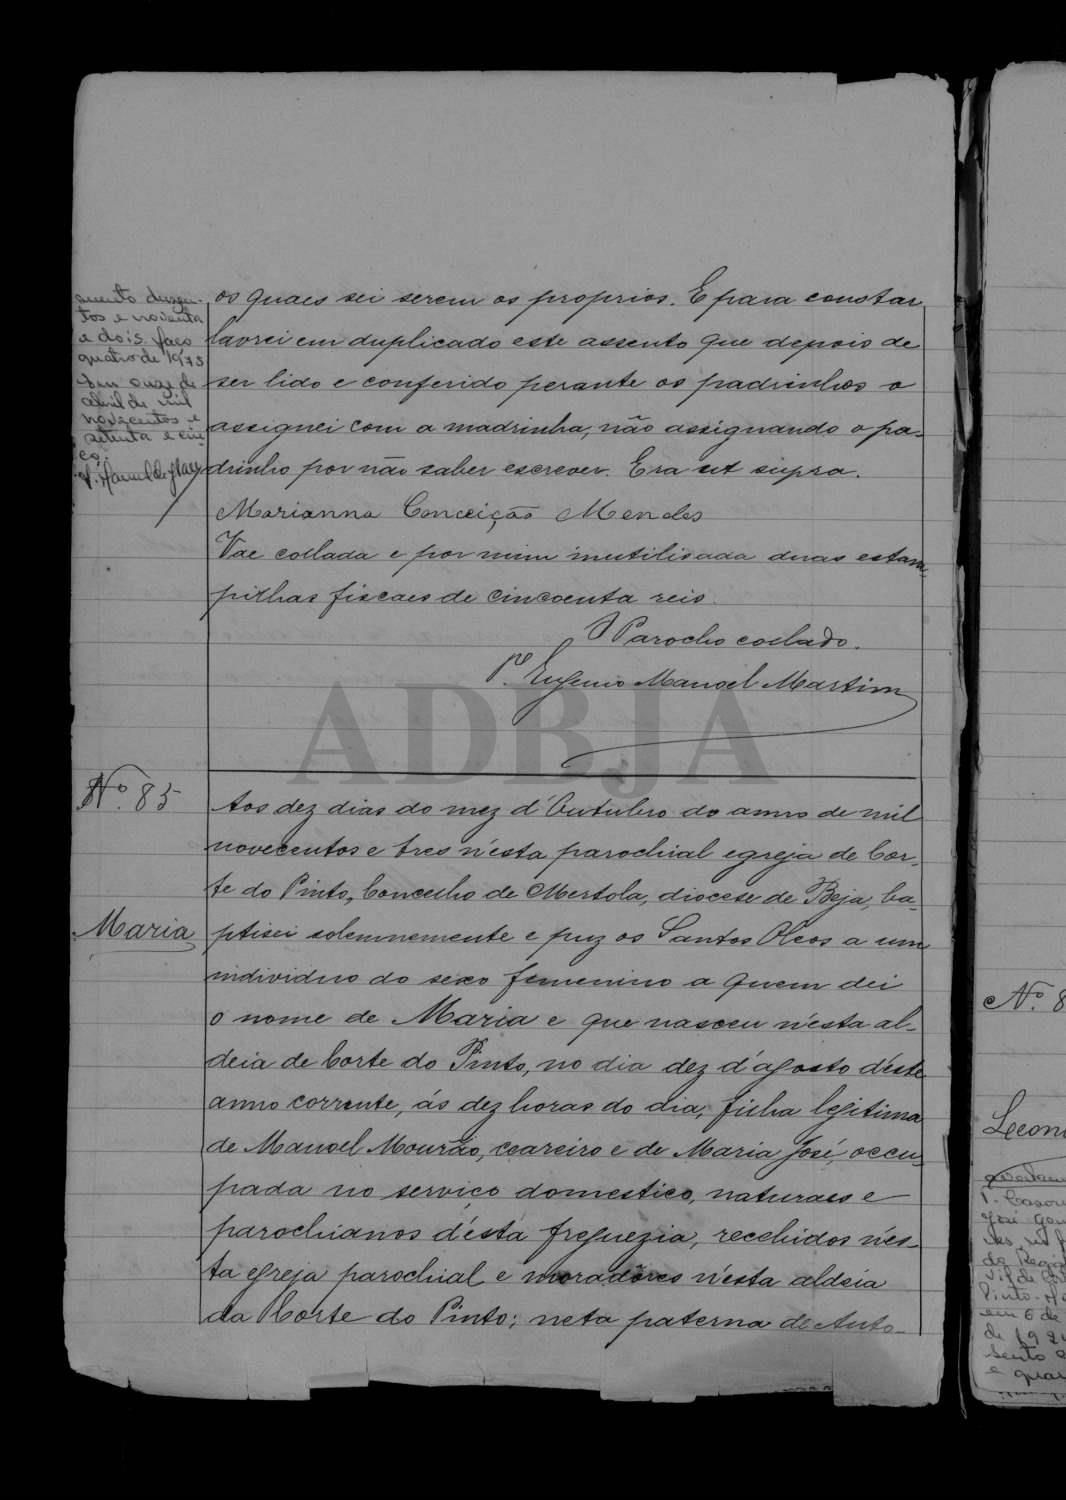 amento duzen-
tos e noventa
e dois. faco
quatro de 1975
Em onze de
abril de mil
novecentos e
setenta e cin
co.
os quaes sei serem os proprios. E para constar
lavrei em duplicado este assento que depois de
ser lido e conferido perante os padrinhos o
assignei com a madrinha, não assignando o pa-
drinho por não saber escrever. Era ut supra.
Marianna Conceição Mendes
Vae collada e por mim inutilisada duas estam-
pilhas fiscaes de cincoenta reis.
O Parocho collado.
P.e Eugenio Manoel Martins
ADBJA
N.º 85
Maria
Aos dez dias do mez d'Outubro do anno de mil
novecentos e tres n'esta parochial egreja de Cor-
te do Pinto, Concelho de Mertola, diocese de Beja, ba-
ptisei solemnemente e puz os Santos Oleos a um
individuo do sexo femenino a quem dei
o nome de Maria e que nasceu n'esta al-
deia de Corte do Pinto, no dia dez d'agosto d'este
anno corrente, ás dez horas do dia, filha legitima
de Manoel Mourão, ceareiro e de Maria José, occu-
pada no serviço domestico, naturaes e
parochianos d'ésta freguezia, recebidos n'és-
ta egreja parochial e moradôres n'esta aldeia
da Corte do Pinto; neta paterna de Anto-
N.º 8
Leon
P.
de
Pinto
em 6 de
de 192
e qua